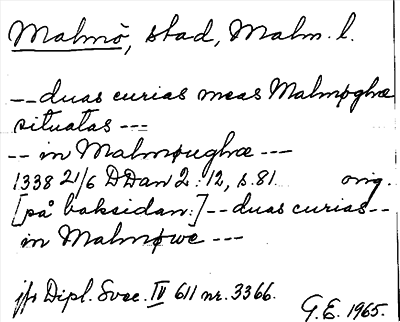 Malmö, stad, Malm. l.
-- duas curias meas Malmøghæ
situatas ---
-- in Malmøughæ ---
1338 21/6 DDan 2:12, s. 81. orig.
[på baksidan:] -- duas curias --
in Malmøwe ---
jfr Dipl. Svec. IV 611 nr. 3366.
G.E. 1965.